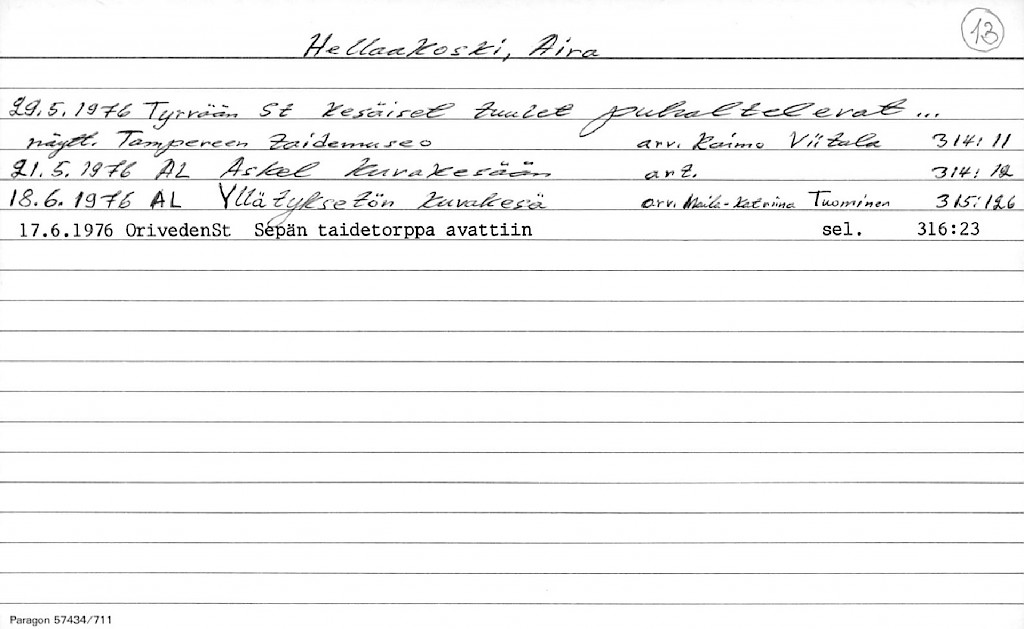 13
Hellaakoski, Aira
29.5.1976 Tyrvään St Kesäiset tuulet puhaltelevat...
näytt. Tampereen taidemuseo arv. Raimo Viitala 314:11
21.5.1976 AL Askel kuvakesään art. 314:12
18.6.1976 AL Yllätyksetön kuvakesä arv. Maila-Katriina Tuominen 315:126
17.6.1976 OrivedenSt Sepän taidetorppa avattiin sel. 316:23
Paragon 57434/711